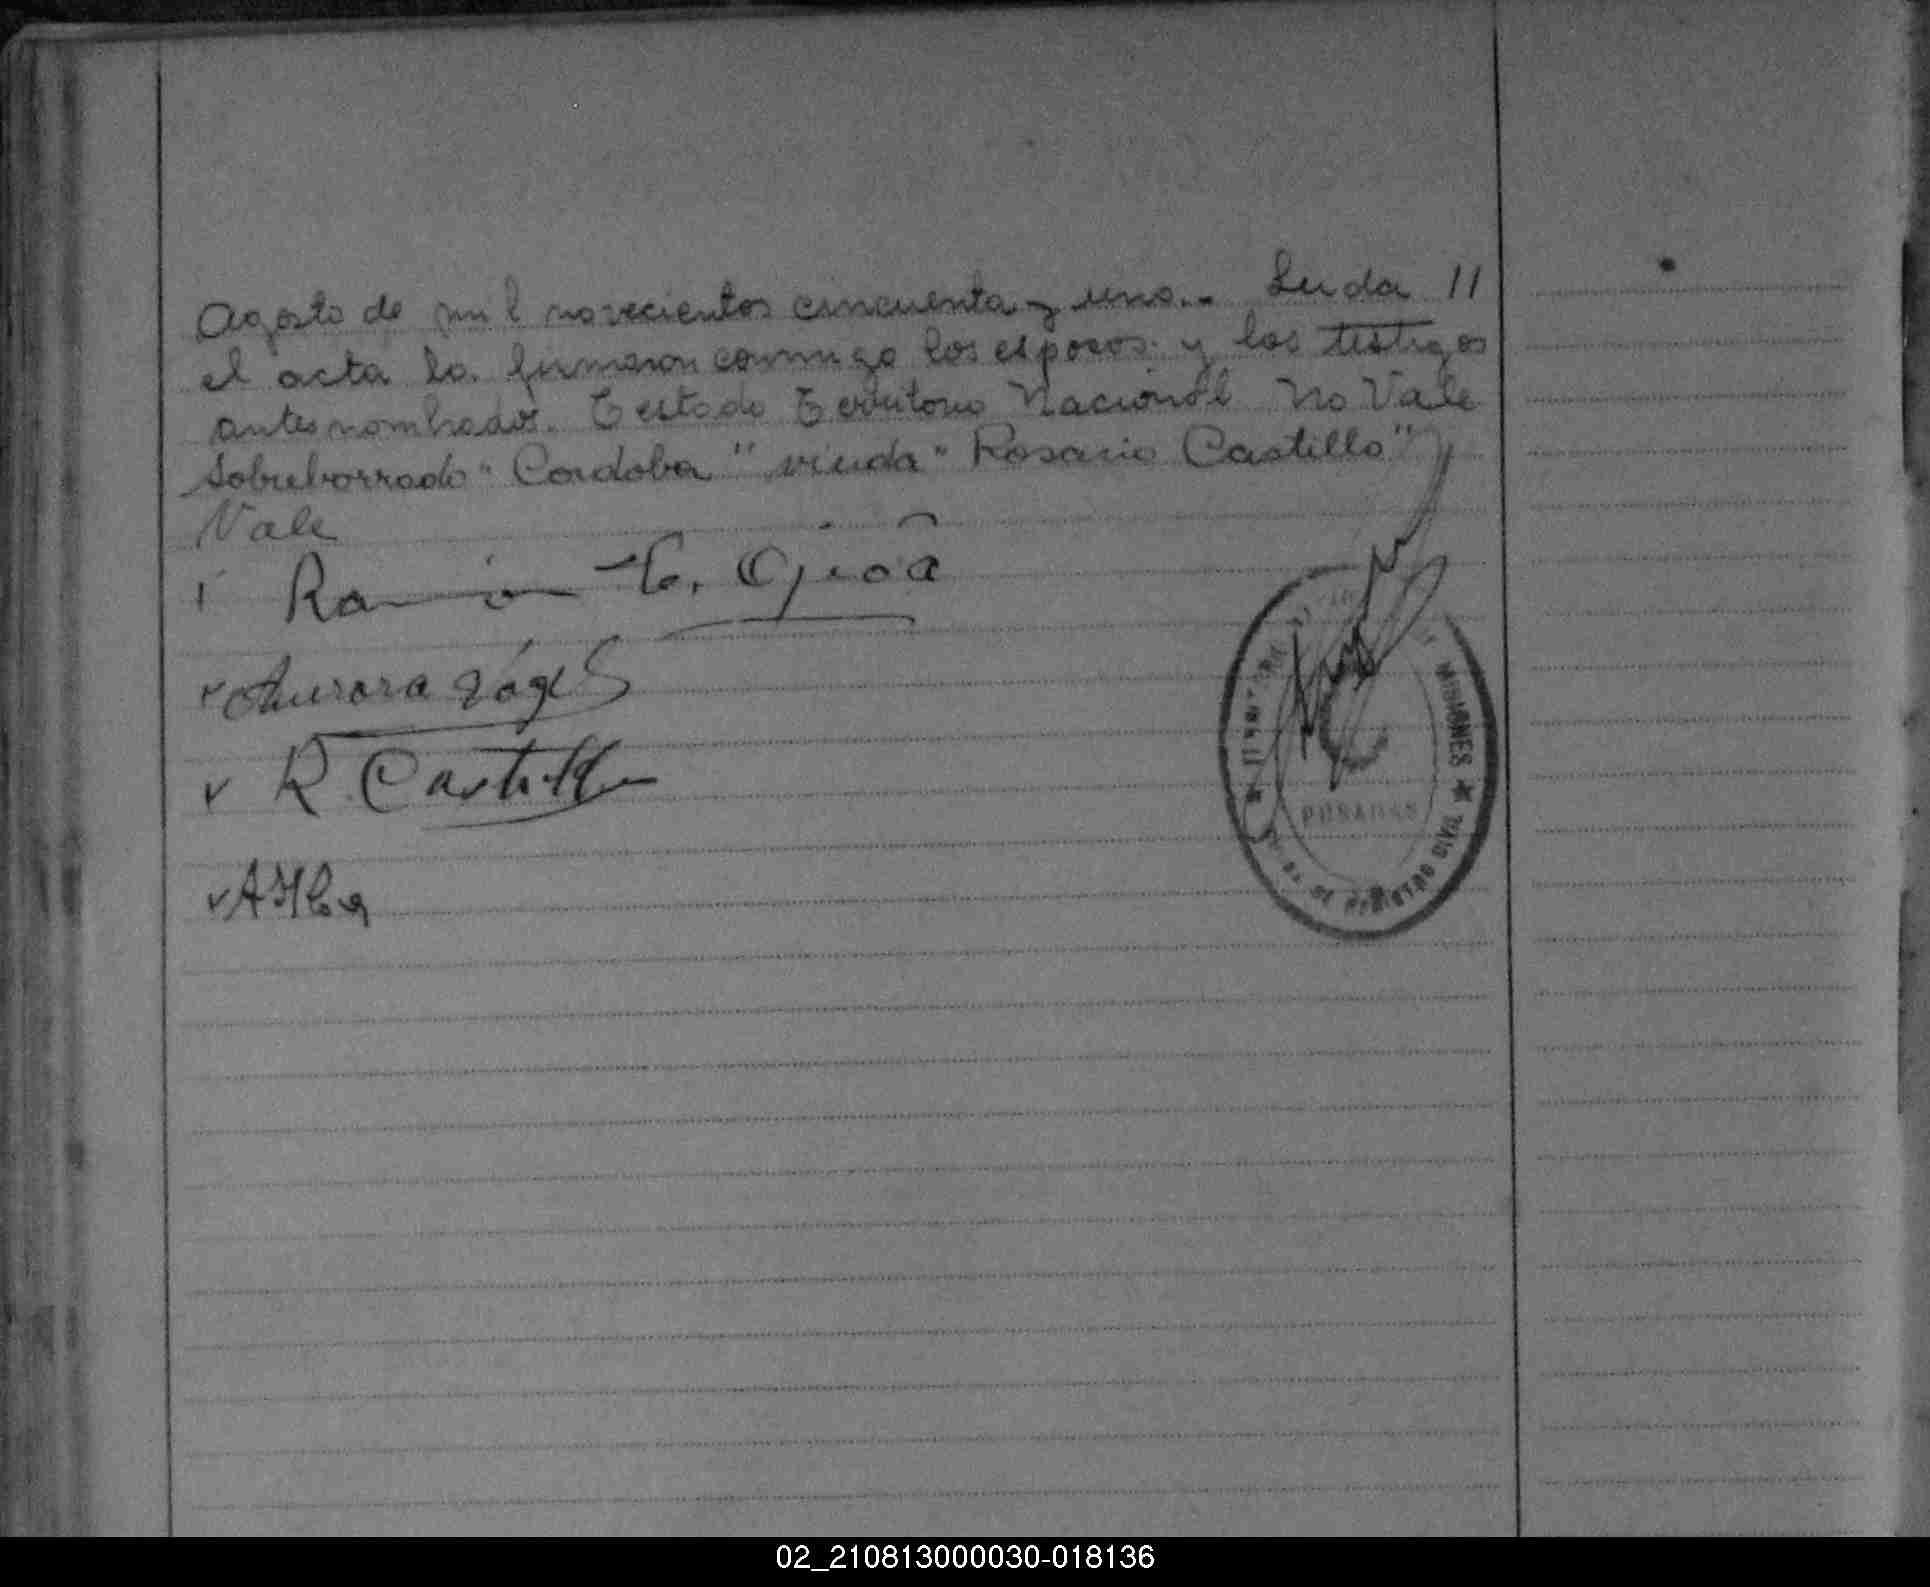 Agosto de mil novecientos cincuenta y uno.. Leida //
el acta la firmaron conmigo los esposos y los testigos
antes nombrados. Testado Territorio Nacional No Vale
Sobreborrado "Cordoba" viuda "Rosario Castillo"
Vale
Ramón Ojeda
Aurora
R. Castillo
MISIONES ★
POSADAS
DE REGISTRO CIVIL
02_210813000030-018136